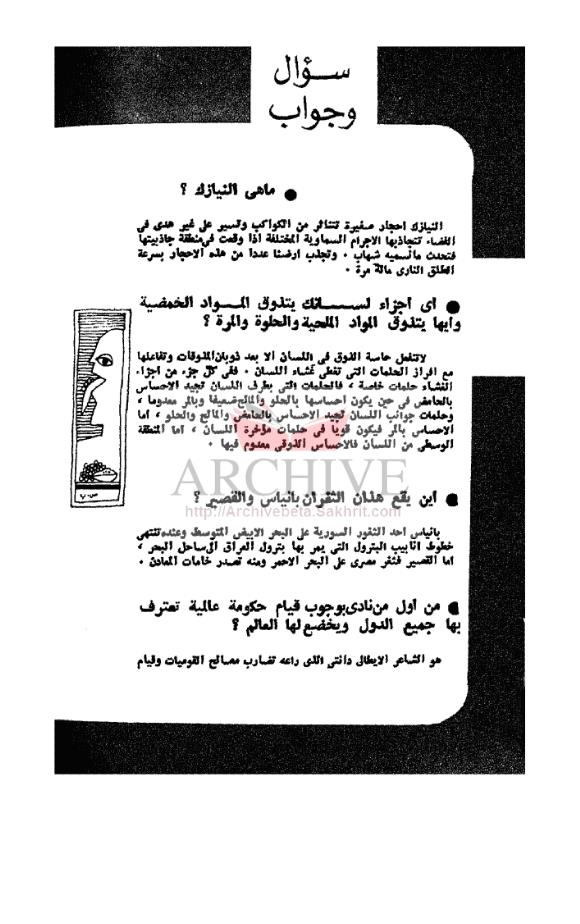 سؤال
وجواب
● ماهى النيازك ؟
النيازك احجار صغيرة تتناثر من الكواكب وتسير على غير هدى فى
الفضاء تتجاذبها الاجرام السماوية المختلفة اذا وقعت فى منطقة جاذبيتها
فتحدث مانسميه شهاب ٠ وتجذب ارضنا عددا من هذه الاحجار بسرعة
الطلق النارى مائة مرة ٠
● اى اجزاء لسانك يتذوق المواد الحمضية
وايها يتذوق المواد الملحية والحلوة والمرة ؟
لاتنفعل حاسة الذوق فى اللسان الا بعد ذوبان المذوقات وتفاعلها
مع افراز الحلمات التى تغطى غشاء اللسان ٠ ففى كل جزء من اجزاء
الغشاء حلمات خاصة ، فالحلمات التى بطرف اللسان تجيد الاحساس
بالحامض فى حين يكون احساسها بالحلو والمالح ضعيفا وبالمر معدوما ،
وحلمات جوانب اللسان تجيد الاحساس بالحامض والمالح والحلو ، اما
الاحساس بالمر فيكون قويا فى حلمات مؤخرة اللسان ، اما المنطقة
الوسطى من اللسان فالاحساس الذوقى معدوم فيها ٠
ARCHIVE
● اين يقع هذان الثغران بانياس والقصير ؟
http://Archivebeta.Sakhrit.com
بانياس احد الثغور السورية على البحر الابيض المتوسط وعنده تنتهى
خطوط انابيب البترول التى يمر بها بترول العراق الى ساحل البحر ،
اما القصير فثغر مصرى على البحر الاحمر ومنه تصدر خامات المعادن ٠
● من اول من نادى بوجوب قيام حكومة عالمية تعترف
بها جميع الدول ويخضع لها العالم ؟
هو الشاعر الايطالى دانتى الذى راعه تضارب مصالح القوميات وقيام